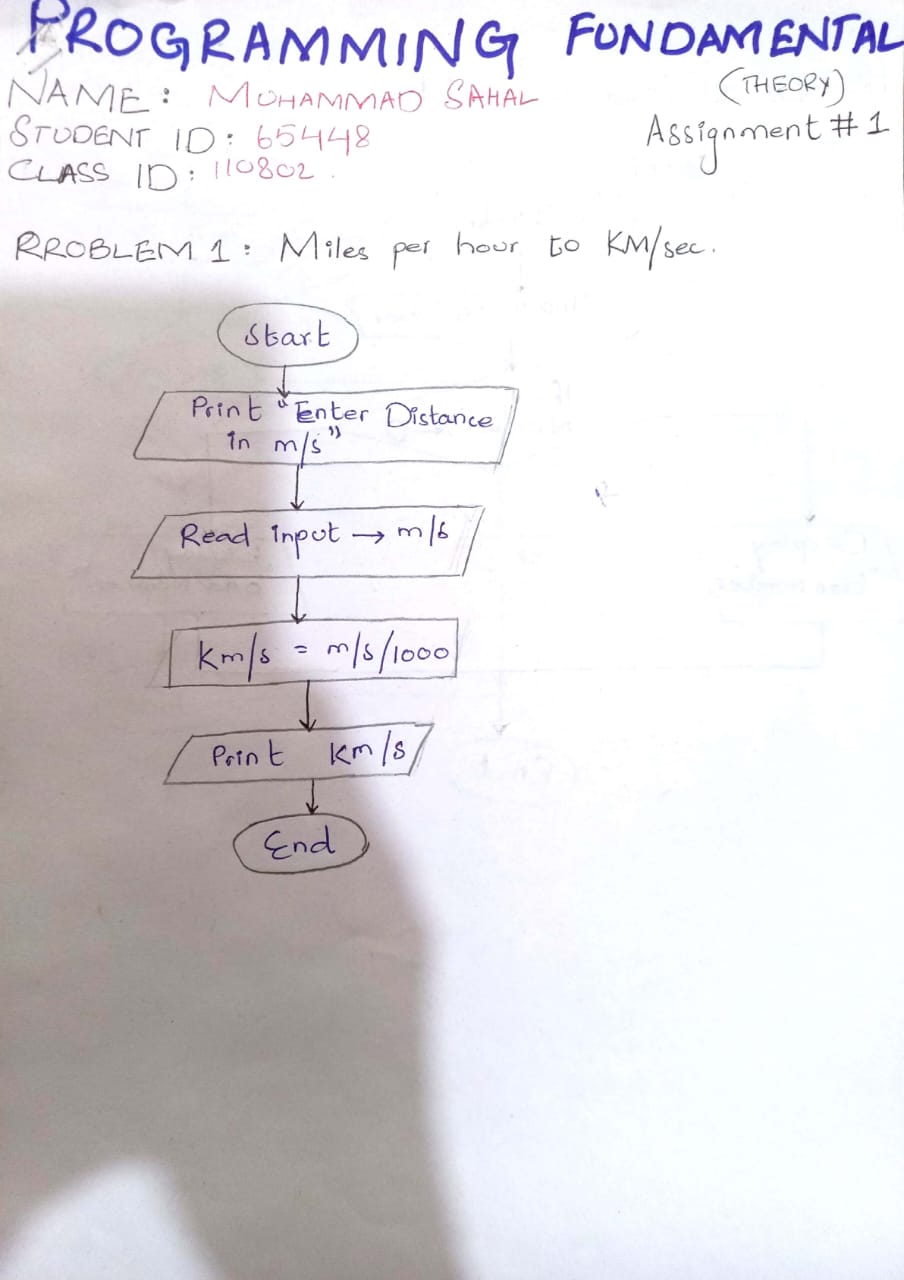 PROGRAMMING FUNDAMENTAL
(THEORY)
NAME: MUHAMMAD SAHAL
Assignment # 1
STUDENT ID: 65448
CLASS ID: 110802.
RROBLEM 1: Miles per hour to KM/sec.
Start
Print "Enter Distance
in m/s"
Read input → m/s
Km/s = m/s/1000
Print Km/s
End